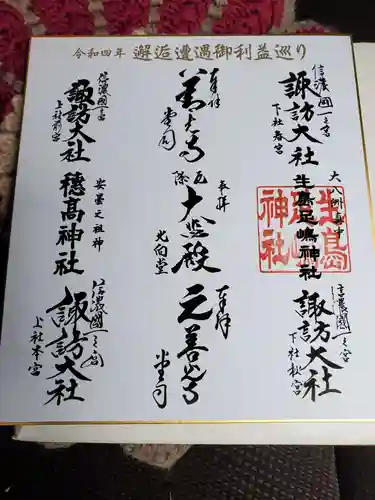 令和四年 邂逅遭遇御利益巡り
信濃國一之宮
諏訪大社
下社春宮
大八洲海中
生島足嶋神社
生島
足嶋
神社
信濃國一之宮
諏訪大社
下社秋宮
奉拝
大黒殿
北向堂
奉拝
元善光寺
信濃國一之宮
諏訪大社
上社前宮
安曇之祖神
穂高神社
信濃國一之宮
諏訪大社
上社本宮